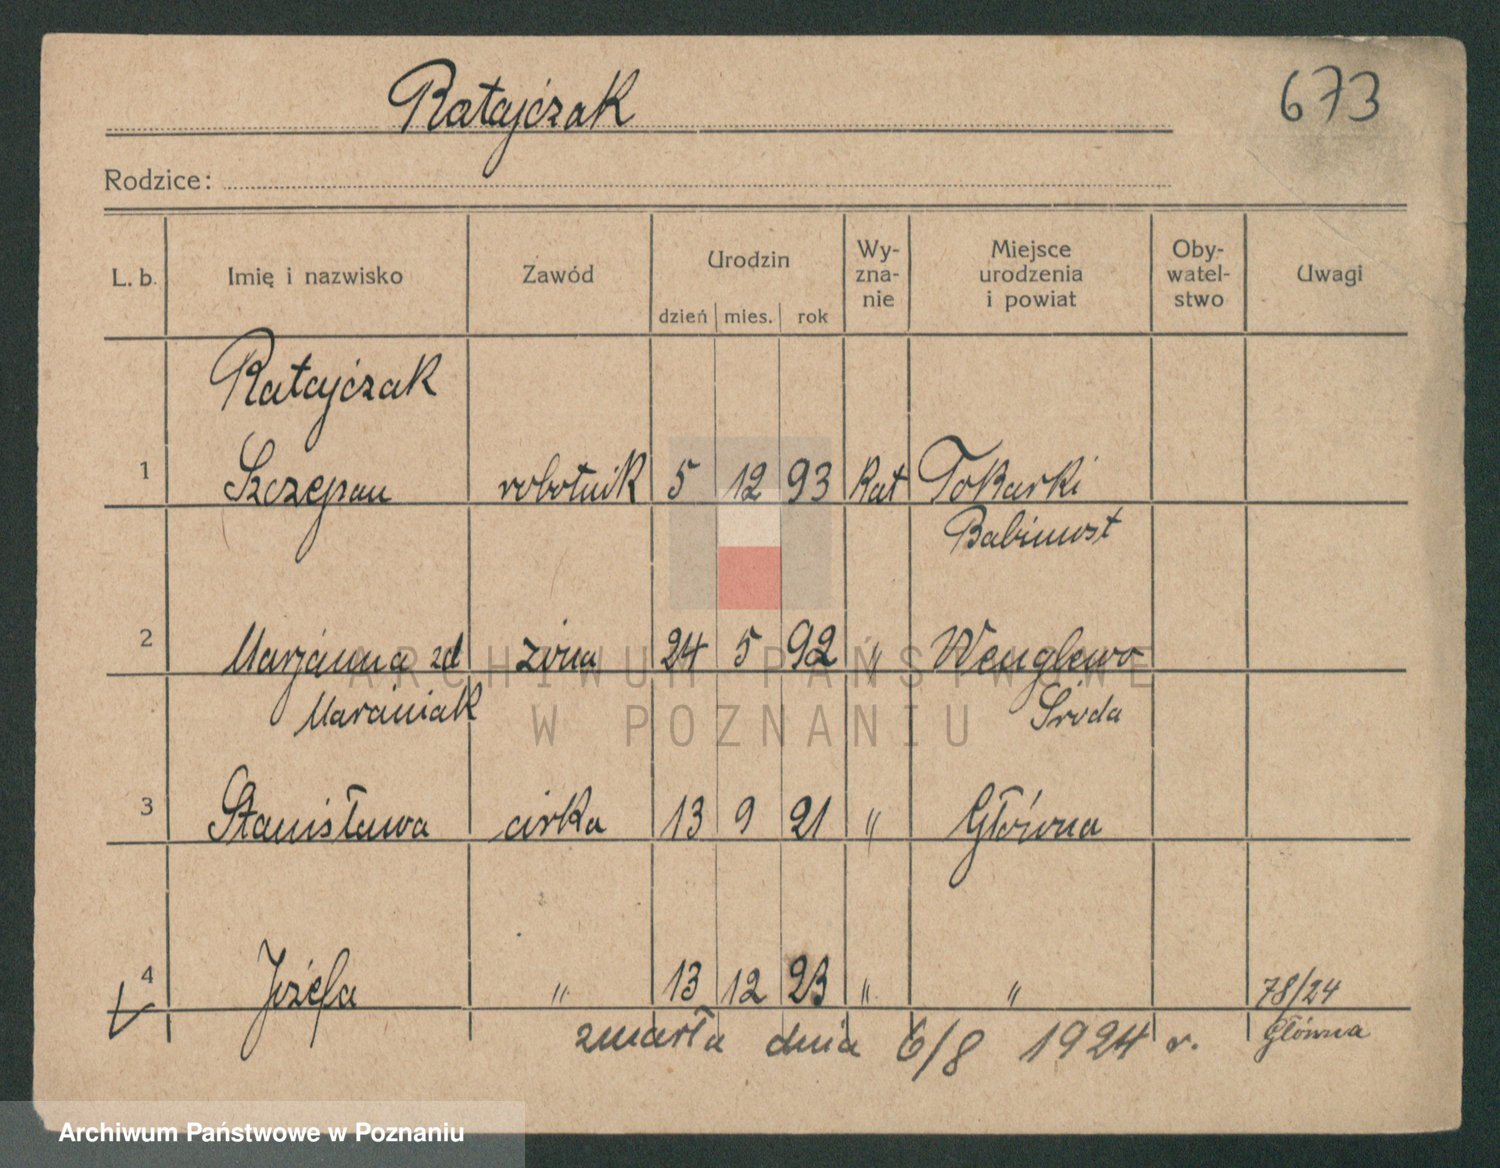 Ratajćzak
673
Rodzice:
L. b. Imię i nazwisko Zawód Urodzin dzień mies. rok Wy-zna-nie Miejsce urodzenia i powiat Oby-watel-stwo Uwagi
Ratajćzak
1 Szczepan robotnik 5 12 93 Kat Tokarki
Babimost
2 Marjanna zd żona 24 5 92 " Wenglewo
Marciniak Środa
3 Stanisława córka 13 9 21 " Główna
4 Józefa " 13 12 23 " " 78/24
zmarła dnia 6/8 1924 r. Główna
ARCHIWUM PAŃSTWOWE
W POZNANIU
Archiwum Państwowe w Poznaniu